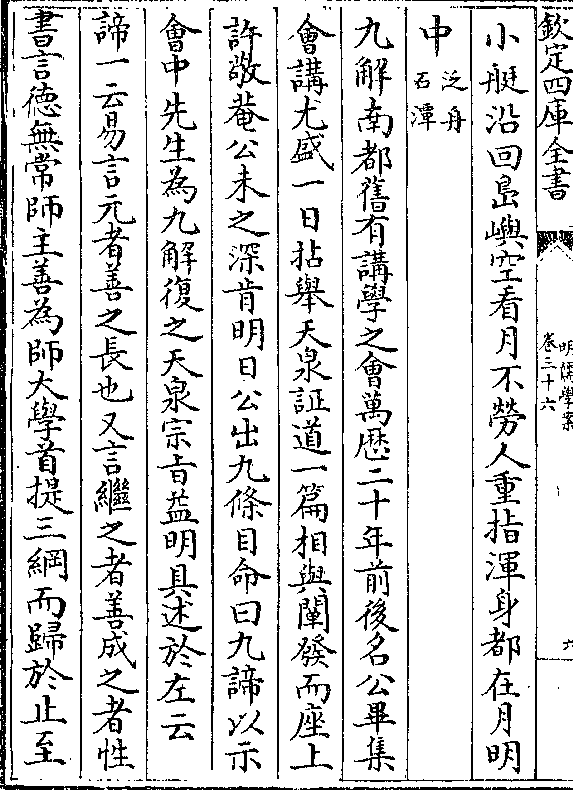 欽定四庫全書
明儒學案
卷三十六
六
小艇沿回島嶼空看月不勞人重指渾身都在月明
中泛舟石潭
九解南都舊有講學之會萬厯二十年前後名公畢集
會講尤盛一日拈舉天泉証道一篇相與闡發而座上
許敬菴公未之深肯明日公出九條目命曰九諦以示
會中先生為九解復之天泉宗旨益明具述於左云
諦一云易言元者善之長也又言繼之者善成之者性
書言德無常師主善為師大學首提三綱而歸於止至